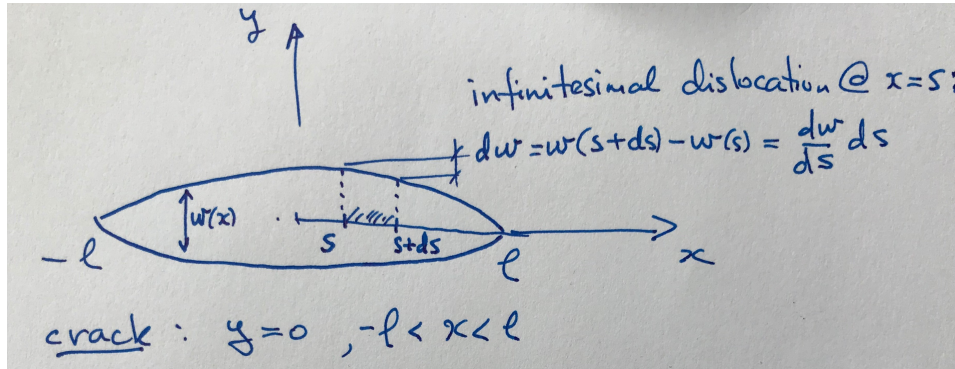 y
infinitesimal dislocation @ x=s:
dw=w(s+ds)-w(s) = dw/ds ds
w(x)
s
s+ds
-l
l
x
crack : y=0 , -l< x<l